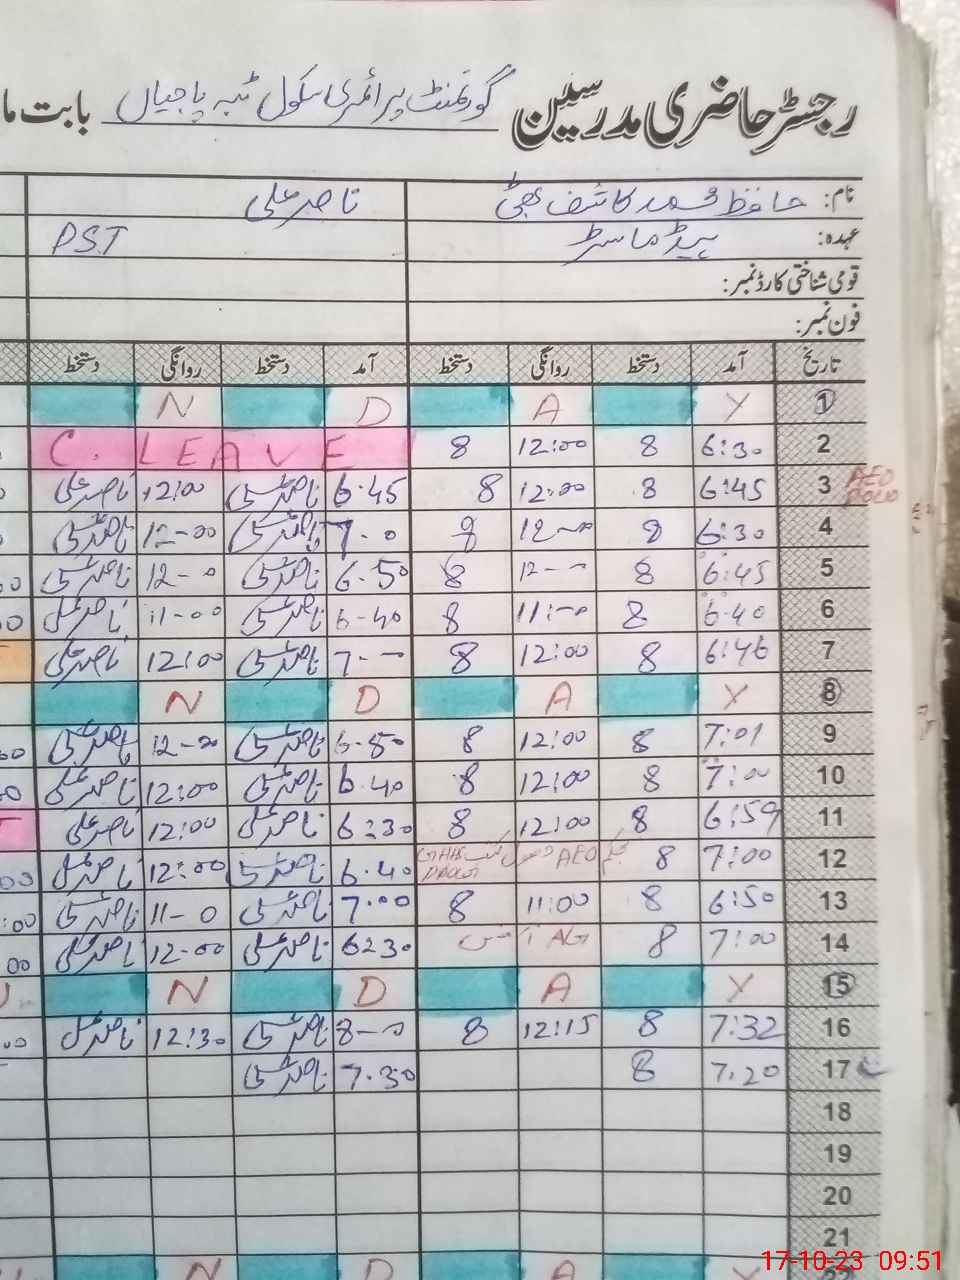 رجسٹر حاضری مدرسین گورنمنٹ پرائمری سکول ٹبہ پاجیاں بابت ما
نام: حافظ محمد کاشف بھٹی ناصر علی
عہدہ: ہیڈ ماسٹر PST
قومی شناختی کارڈ نمبر:
فون نمبر:
تاریخ آمد دستخط روانگی دستخط آمد دستخط روانگی دستخط
1 Y A D N
2 6:30 8 12:00 8 C. LEAVE
AEO 3 6:45 8 12:00 8 6.45 ناصر علی 12:00 ناصر علی
4 6:30 8 12-00 8 7.0 ناصر علی 12-00 ناصر علی
5 6:45 8 12-- 8 6.50 ناصر علی 12-0 ناصر علی
6 6-40 8 11:00 8 6-40 ناصر علی 11-00 ناصر علی
7 6:46 8 12:00 8 7-- ناصر علی 12:00 ناصر علی
8 Y A D N
9 7:01 8 12:00 8 6.50 ناصر علی 12-00 ناصر علی
10 7:00 8 12:00 8 6.40 ناصر علی 12:00 ناصر علی
11 6:59 8 12:00 8 6:30 ناصر علی 12:00 ناصر علی
12 7:00 8 AEO 6.40 ناصر علی 12:00 ناصر علی
13 6:50 8 11:00 8 7.00 ناصر علی 11-0 ناصر علی
14 7:00 8 AG آفس 6:30 ناصر علی 12-00 ناصر علی
15 Y A D N
16 7:32 8 12:15 8 8-0 ناصر علی 12:30 ناصر علی
17 7.20 8 7.30 ناصر علی
18
19
20
21
22 Y A D N
17-10-23 09:51